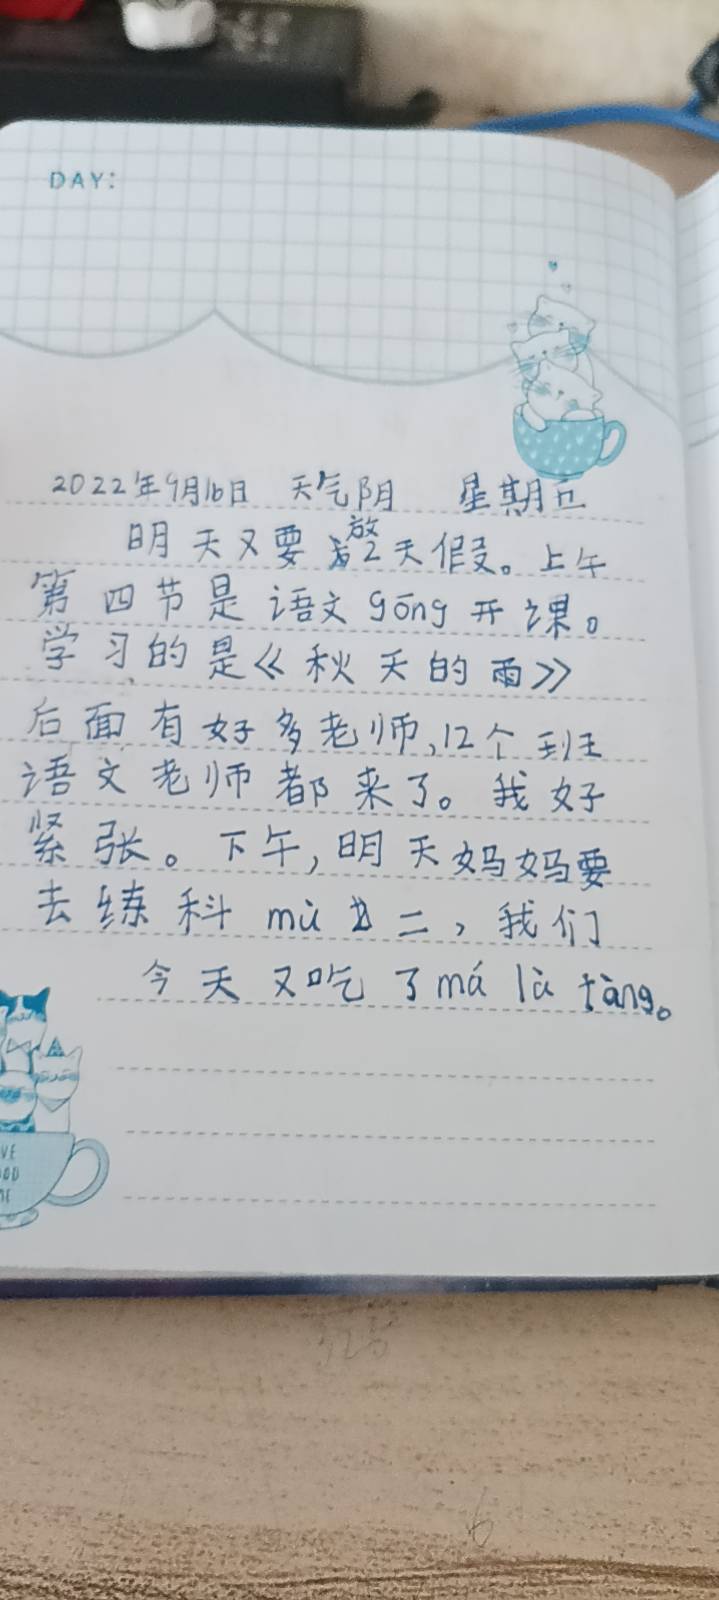 DAY:
2022年9月16日 天气阴 星期五
明天又要放2天假。上午
第四节是语文gōng开课。
学习的是《秋天的雨》
后面有好多老师,12个班
语文老师都来了。我好
紧张。下午,明天妈妈要
去练科mù二,我们
今天又吃了má là tàng。
VE
OOD
ME